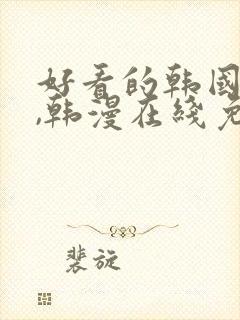 好看的韩国
,韩漫在线免
裴旋